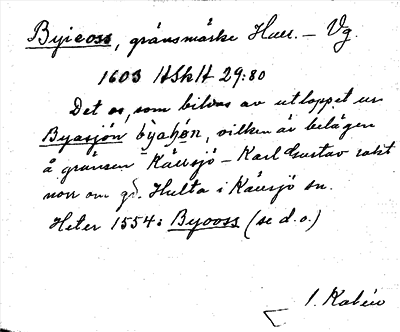 Byieoss, gränsmärke Hall. – Vg.
1603 HSkH 29:80
Det os, som bildas av utloppet ur
Byasjön byahön, vilken är belägen
å gränsen Källsjö – Karl Gustav rakt
norr om gd. Hulta i Källsjö sn.
Heter 1554: Byooss (se d.o.)